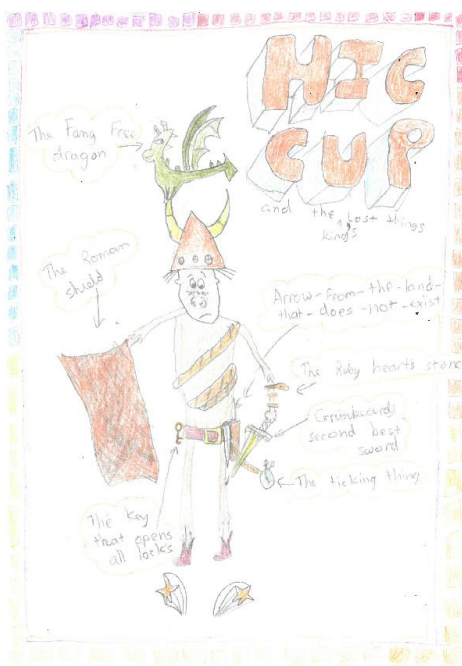 HIC
CUP
and the Lost things
kings
The Fang Free
dragon
The Roman
shield
Arrow-from-the-land-
that-does-not-exist
The Ruby heart's stone
second best
sword
The ticking thing
The key
that opens
all locks